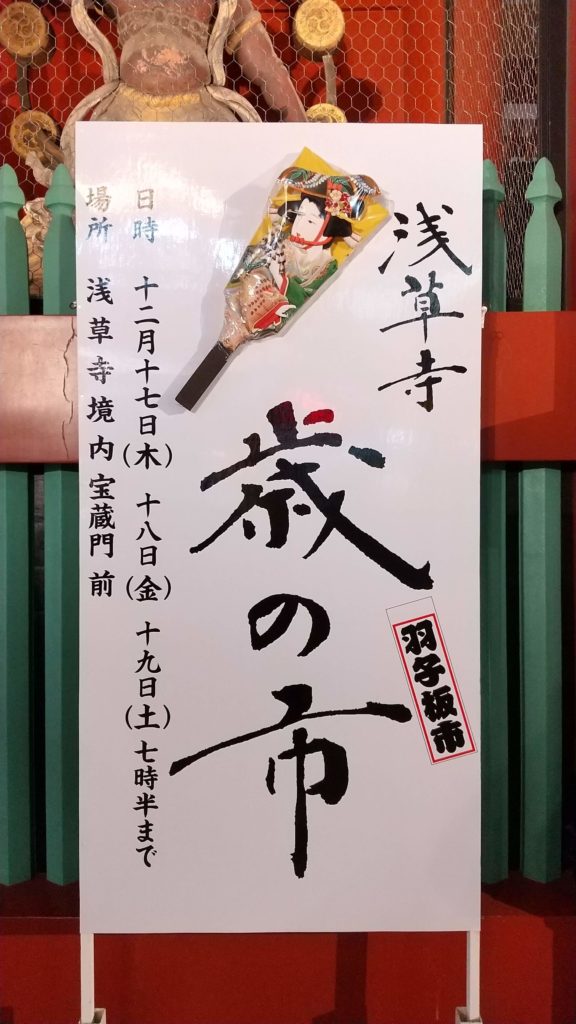 浅草寺
歳の市
羽子板市
日時 十二月十七日(木) 十八日(金) 十九日(土) 七時半まで
場所 浅草寺境内 宝蔵門前